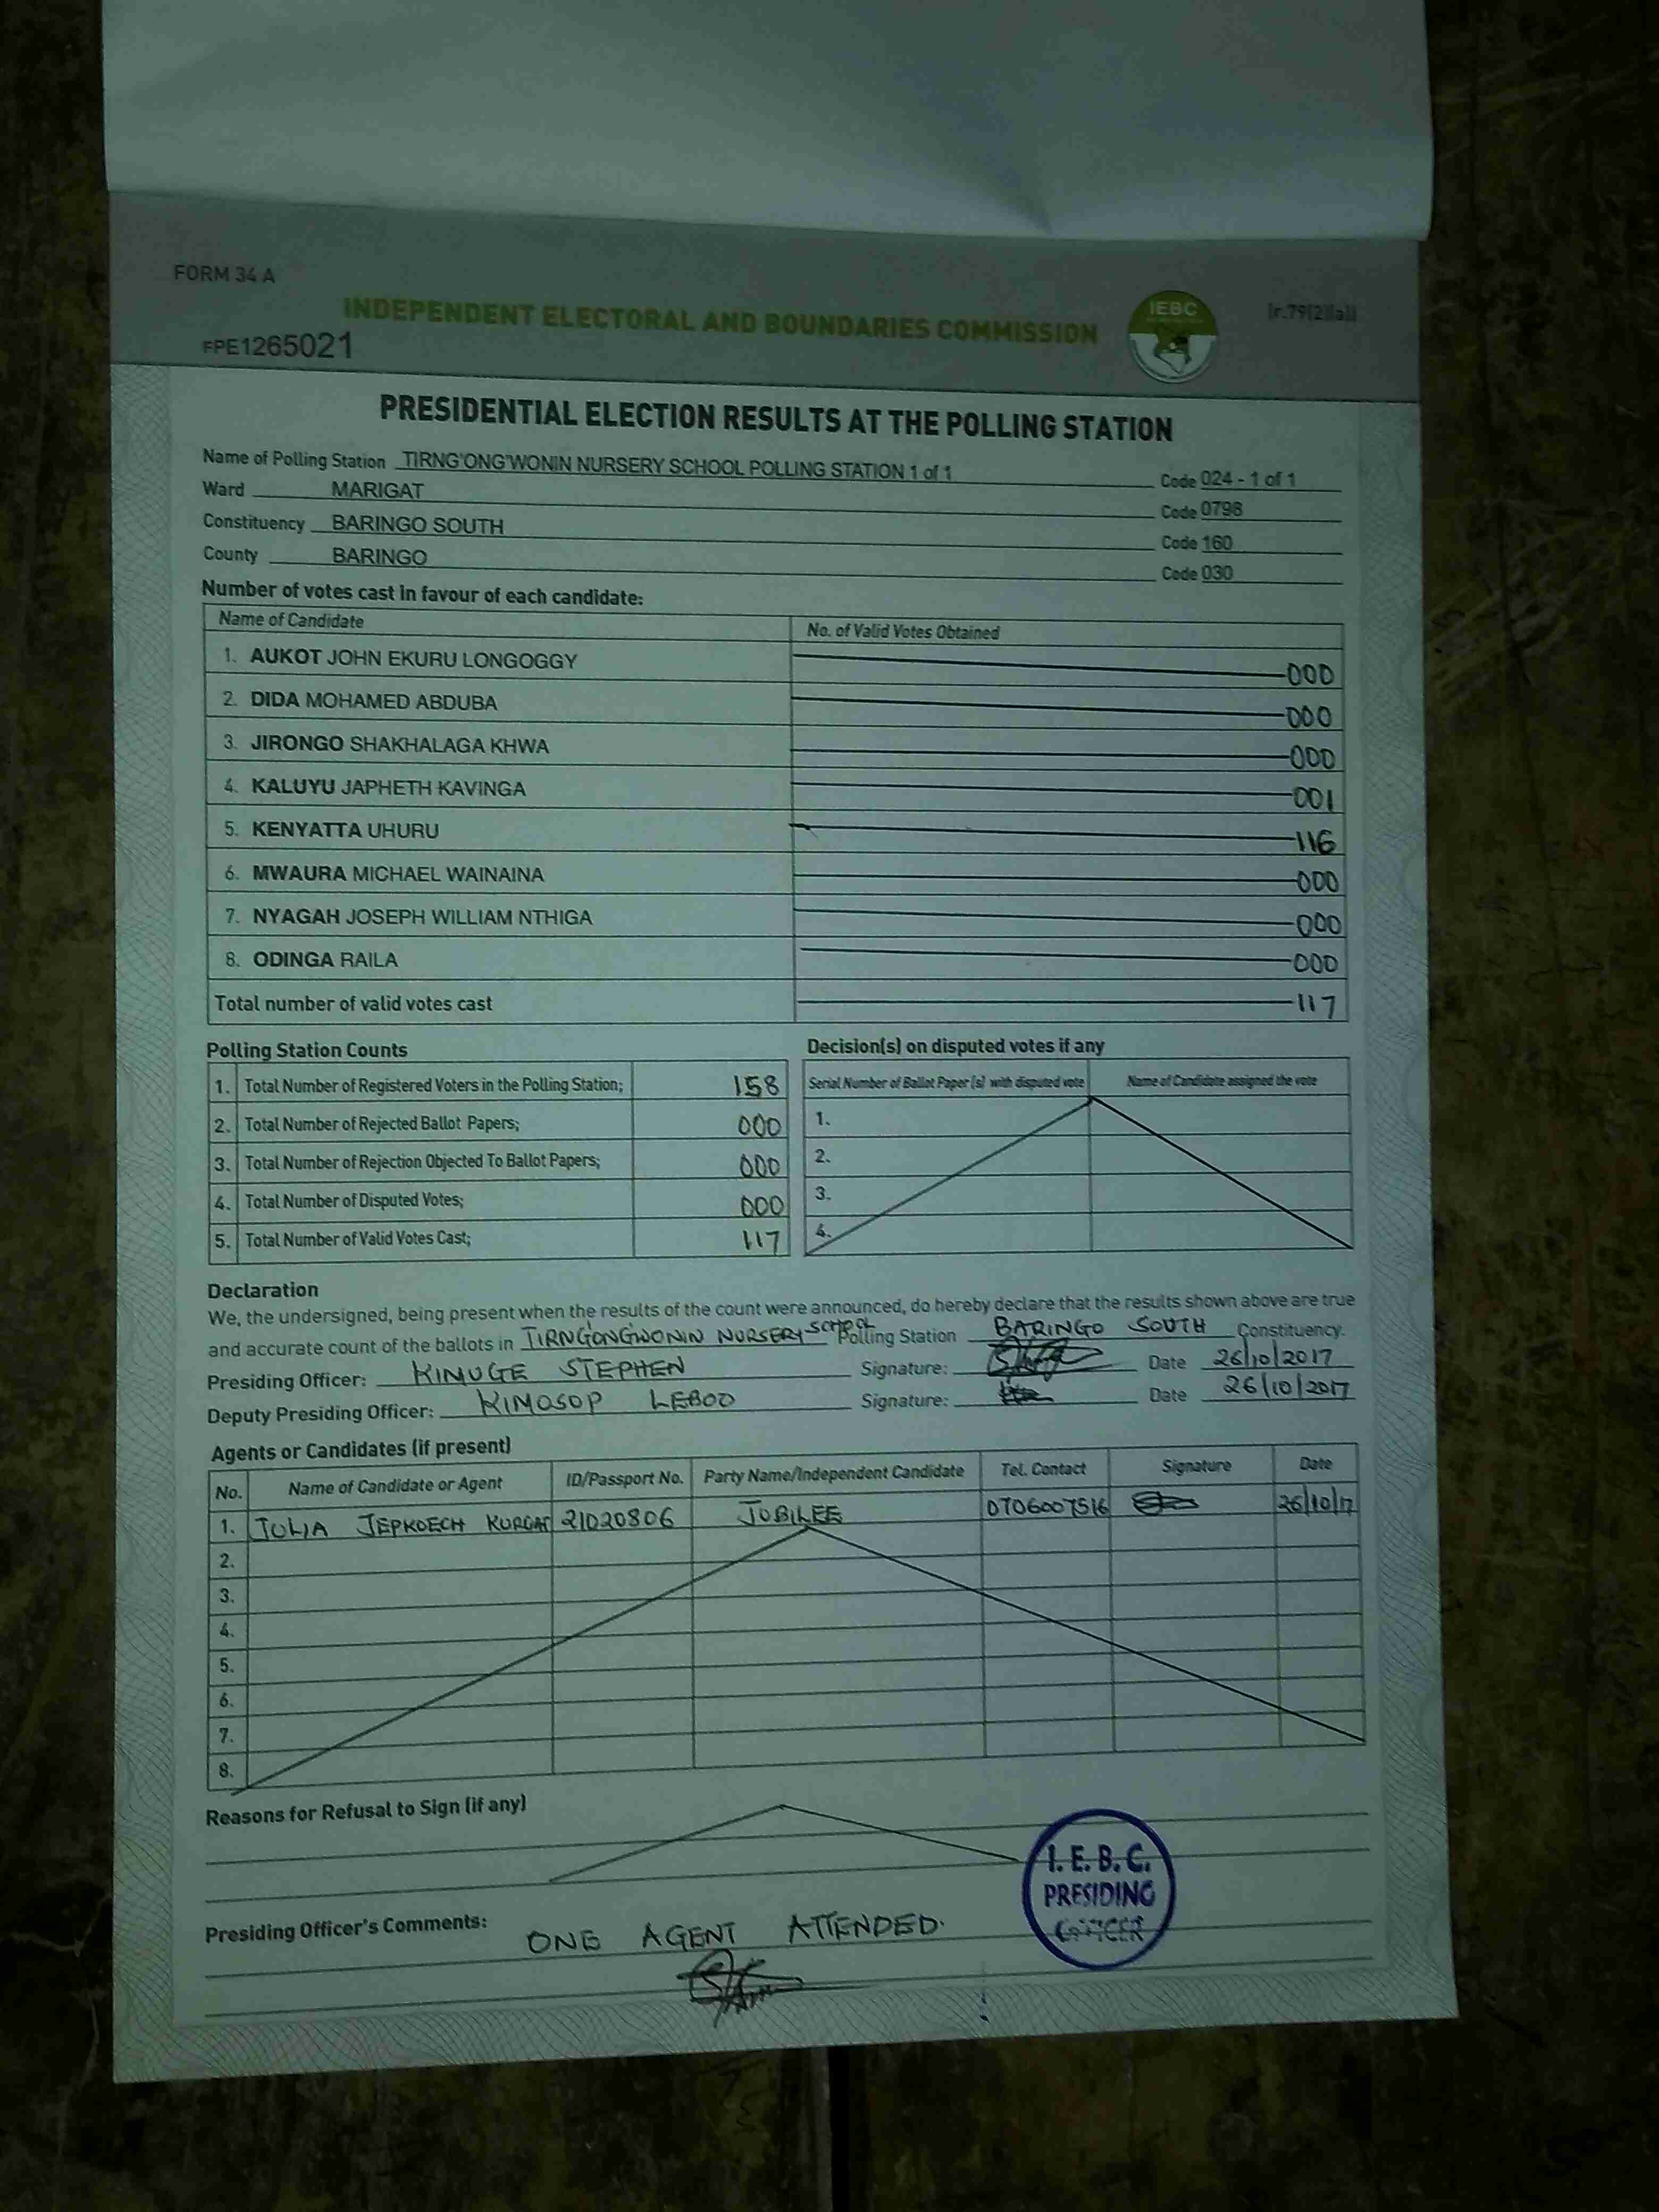 FORM 34 A
INDEPENDENT ELECTORAL AND BOUNDARIES COMMISSION
IEBC
(r.79(2)(a))
FPE1265021
PRESIDENTIAL ELECTION RESULTS AT THE POLLING STATION
Name of Polling Station TIRNG'ONG'WONIN NURSERY SCHOOL POLLING STATION 1 of 1 Code 024 - 1 of 1
Ward MARIGAT Code 0798
Constituency BARINGO SOUTH Code 160
County BARINGO Code 030
Number of votes cast in favour of each candidate:
Name of Candidate No. of Valid Votes Obtained
1. AUKOT JOHN EKURU LONGOGGY 000
2. DIDA MOHAMED ABDUBA 000
3. JIRONGO SHAKHALAGA KHWA 000
4. KALUYU JAPHETH KAVINGA 001
5. KENYATTA UHURU 116
6. MWAURA MICHAEL WAINAINA 000
7. NYAGAH JOSEPH WILLIAM NTHIGA 000
8. ODINGA RAILA 000
Total number of valid votes cast 117
Polling Station Counts
1. Total Number of Registered Voters in the Polling Station; 158
2. Total Number of Rejected Ballot Papers; 000
3. Total Number of Rejection Objected To Ballot Papers; 000
4. Total Number of Disputed Votes; 000
5. Total Number of Valid Votes Cast; 117
Decision(s) on disputed votes if any
Serial Number of Ballot Paper (s) with disputed vote Name of Candidate assigned the vote
1.
2.
3.
4.
Declaration
We, the undersigned, being present when the results of the count were announced, do hereby declare that the results shown above are true
and accurate count of the ballots in TIRNGONGWONIN NURSERY SCHOOL Polling Station BARINGO SOUTH Constituency.
Presiding Officer: KIMUGE STEPHEN Signature: Date 26/10/2017
Deputy Presiding Officer: KIMOSOP LEBOO Signature: Date 26/10/2017
Agents or Candidates (if present)
No. Name of Candidate or Agent ID/Passport No. Party Name/Independent Candidate Tel. Contact Signature Date
1. JULIA JEPKOECH KURGAT 21020806 JUBILEE 0706007516 26/10/17
2.
3.
4.
5.
6.
7.
8.
Reasons for Refusal to Sign (if any)
I. E. B. C.
PRESIDING
OFFICER
Presiding Officer's Comments: ONE AGENT ATTENDED.